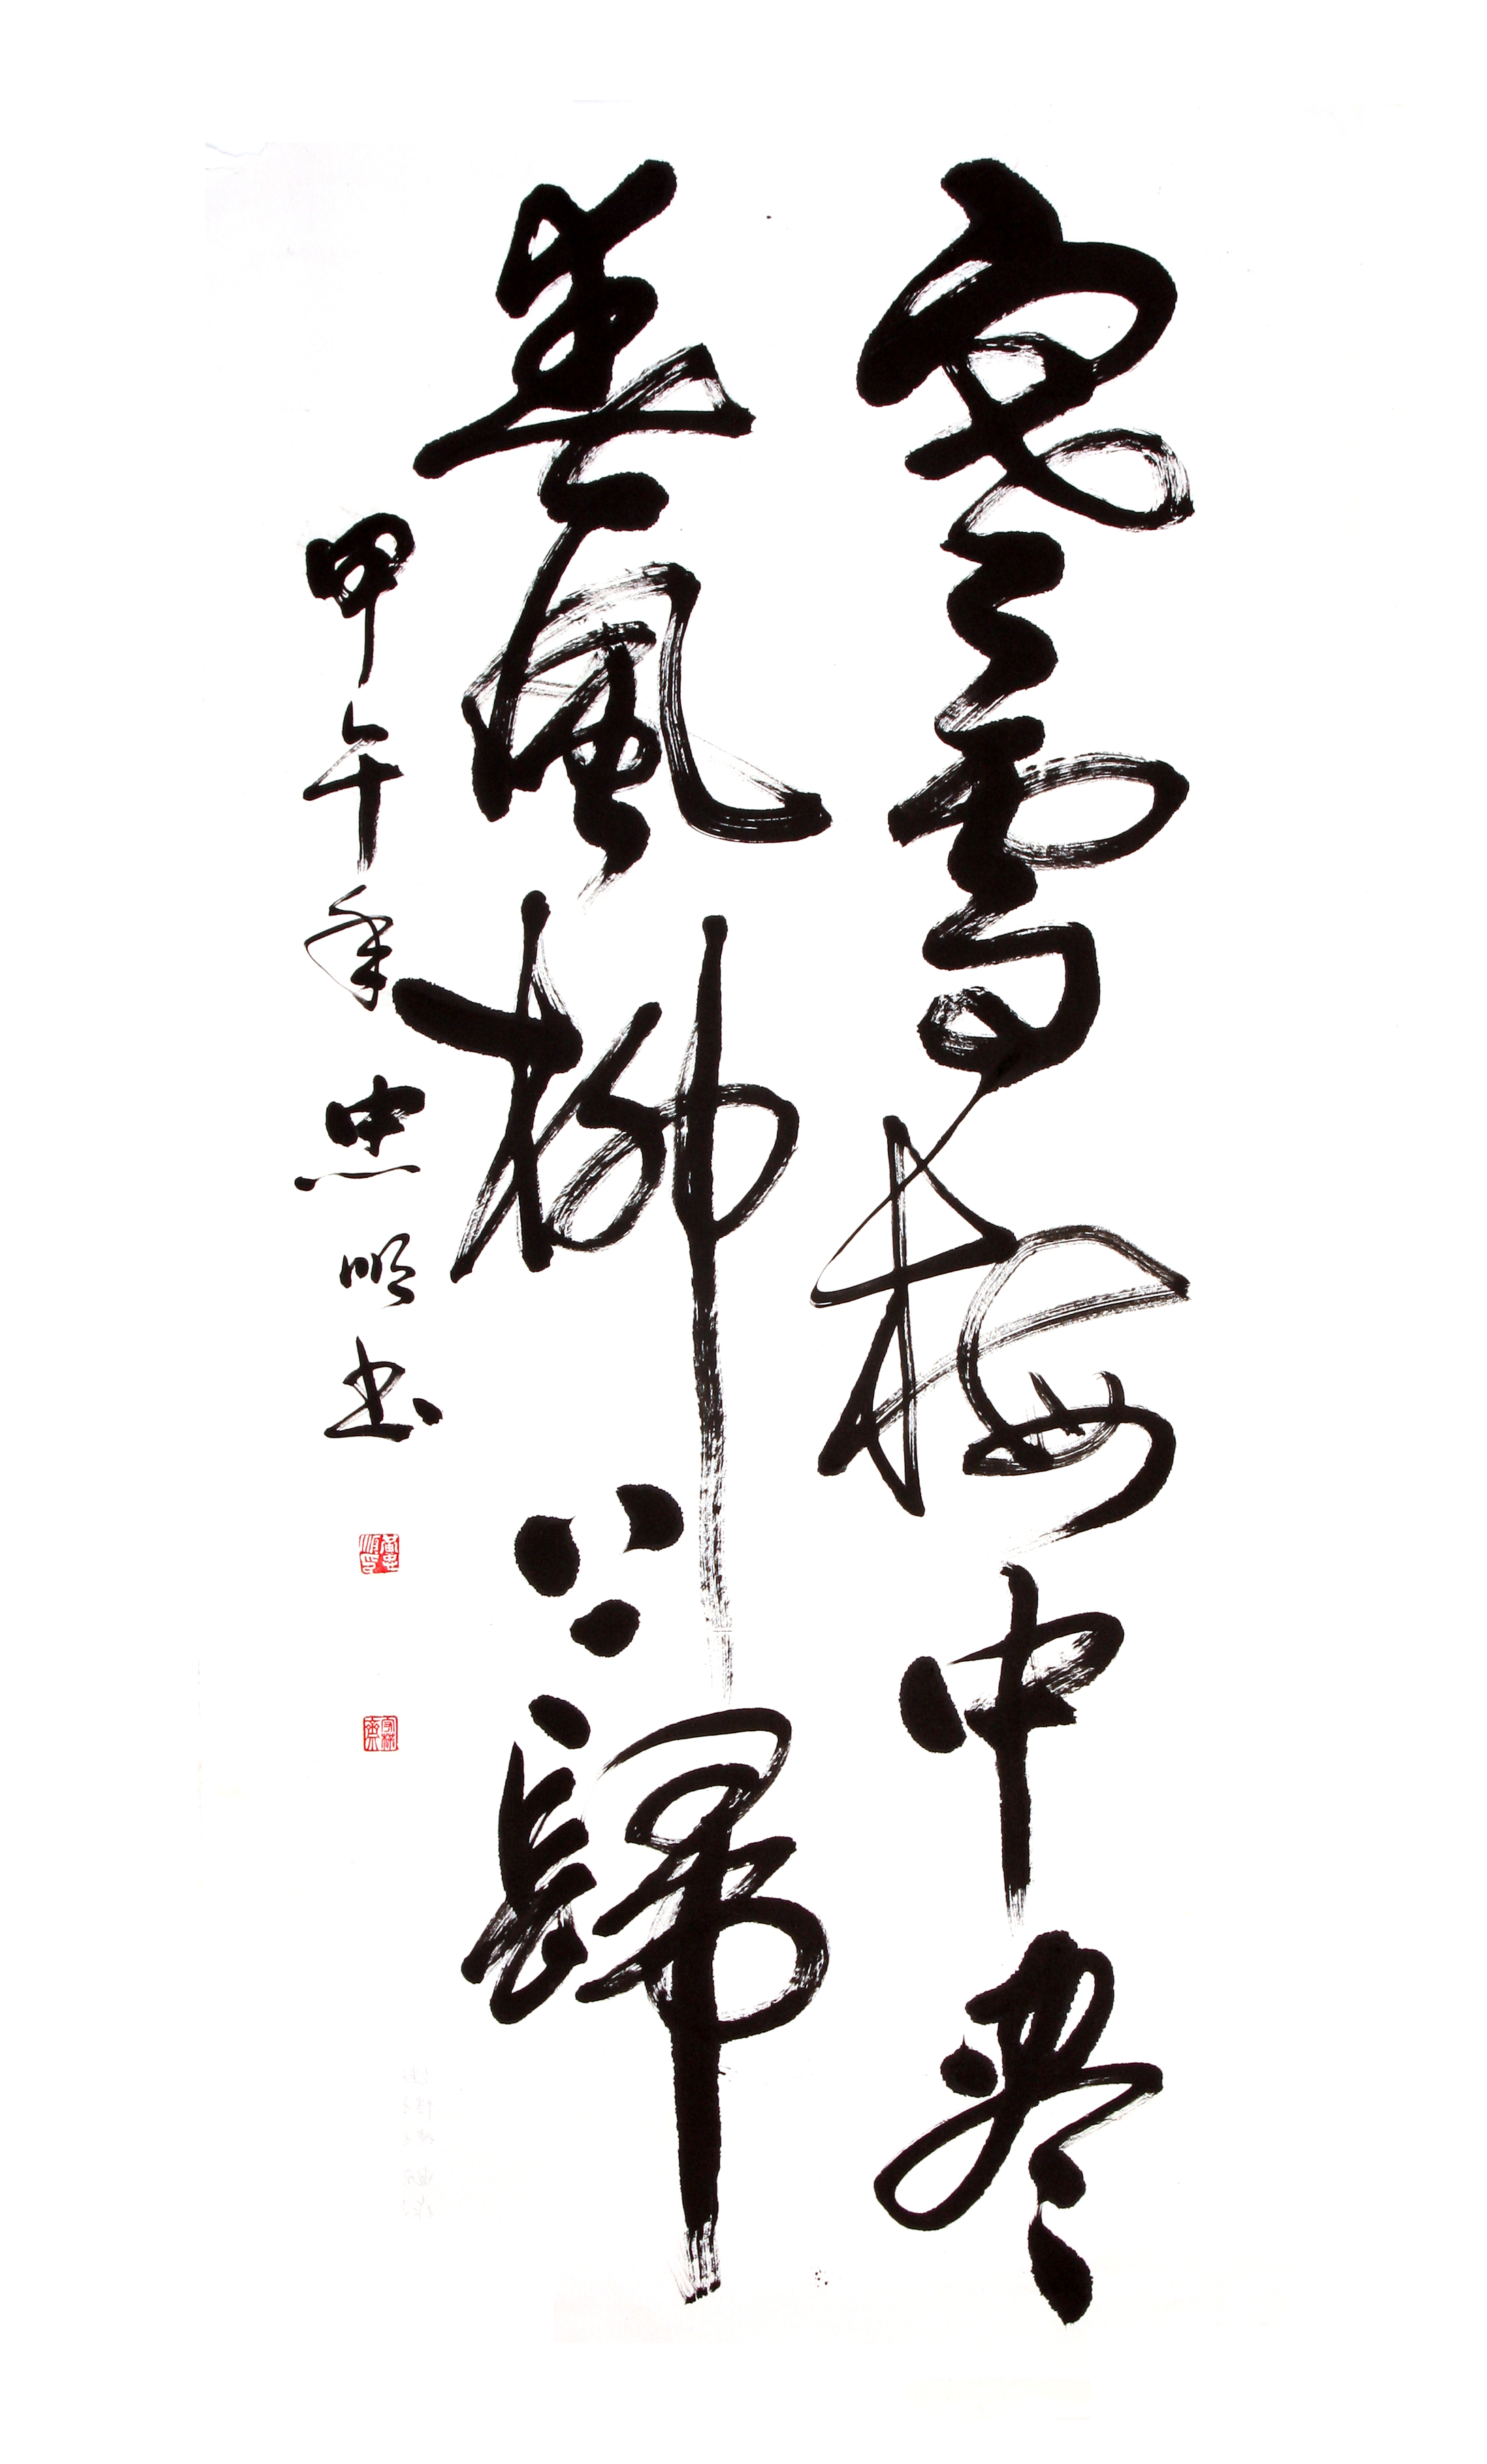 寒雪梅中尽
春風柳上歸
甲午年忠顺书